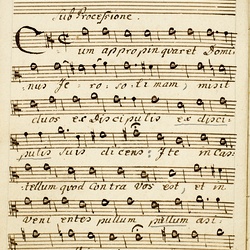 Sub Processione.
Cum appropinquaret Domi-
nus Je-ro-so-limam, misit
duos ex Discipulis ex disci-
pulis suis dicens: Ite in Cas-
tellum quod Contra vos est, et in
veni entes pullum pullum asi-